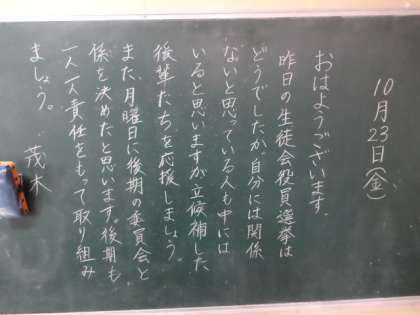 10月23日(金)
おはようございます。
昨日の生徒会役員選挙は
どうでしたか。自分には関係
ないと思っている人も中には
いると思いますが立候補した
後輩たちを応援しましょう。
また、月曜日に後期の委員会と
係を決めたと思います。後期も
一人一人責任をもって取り組み
ましょう。 茂木